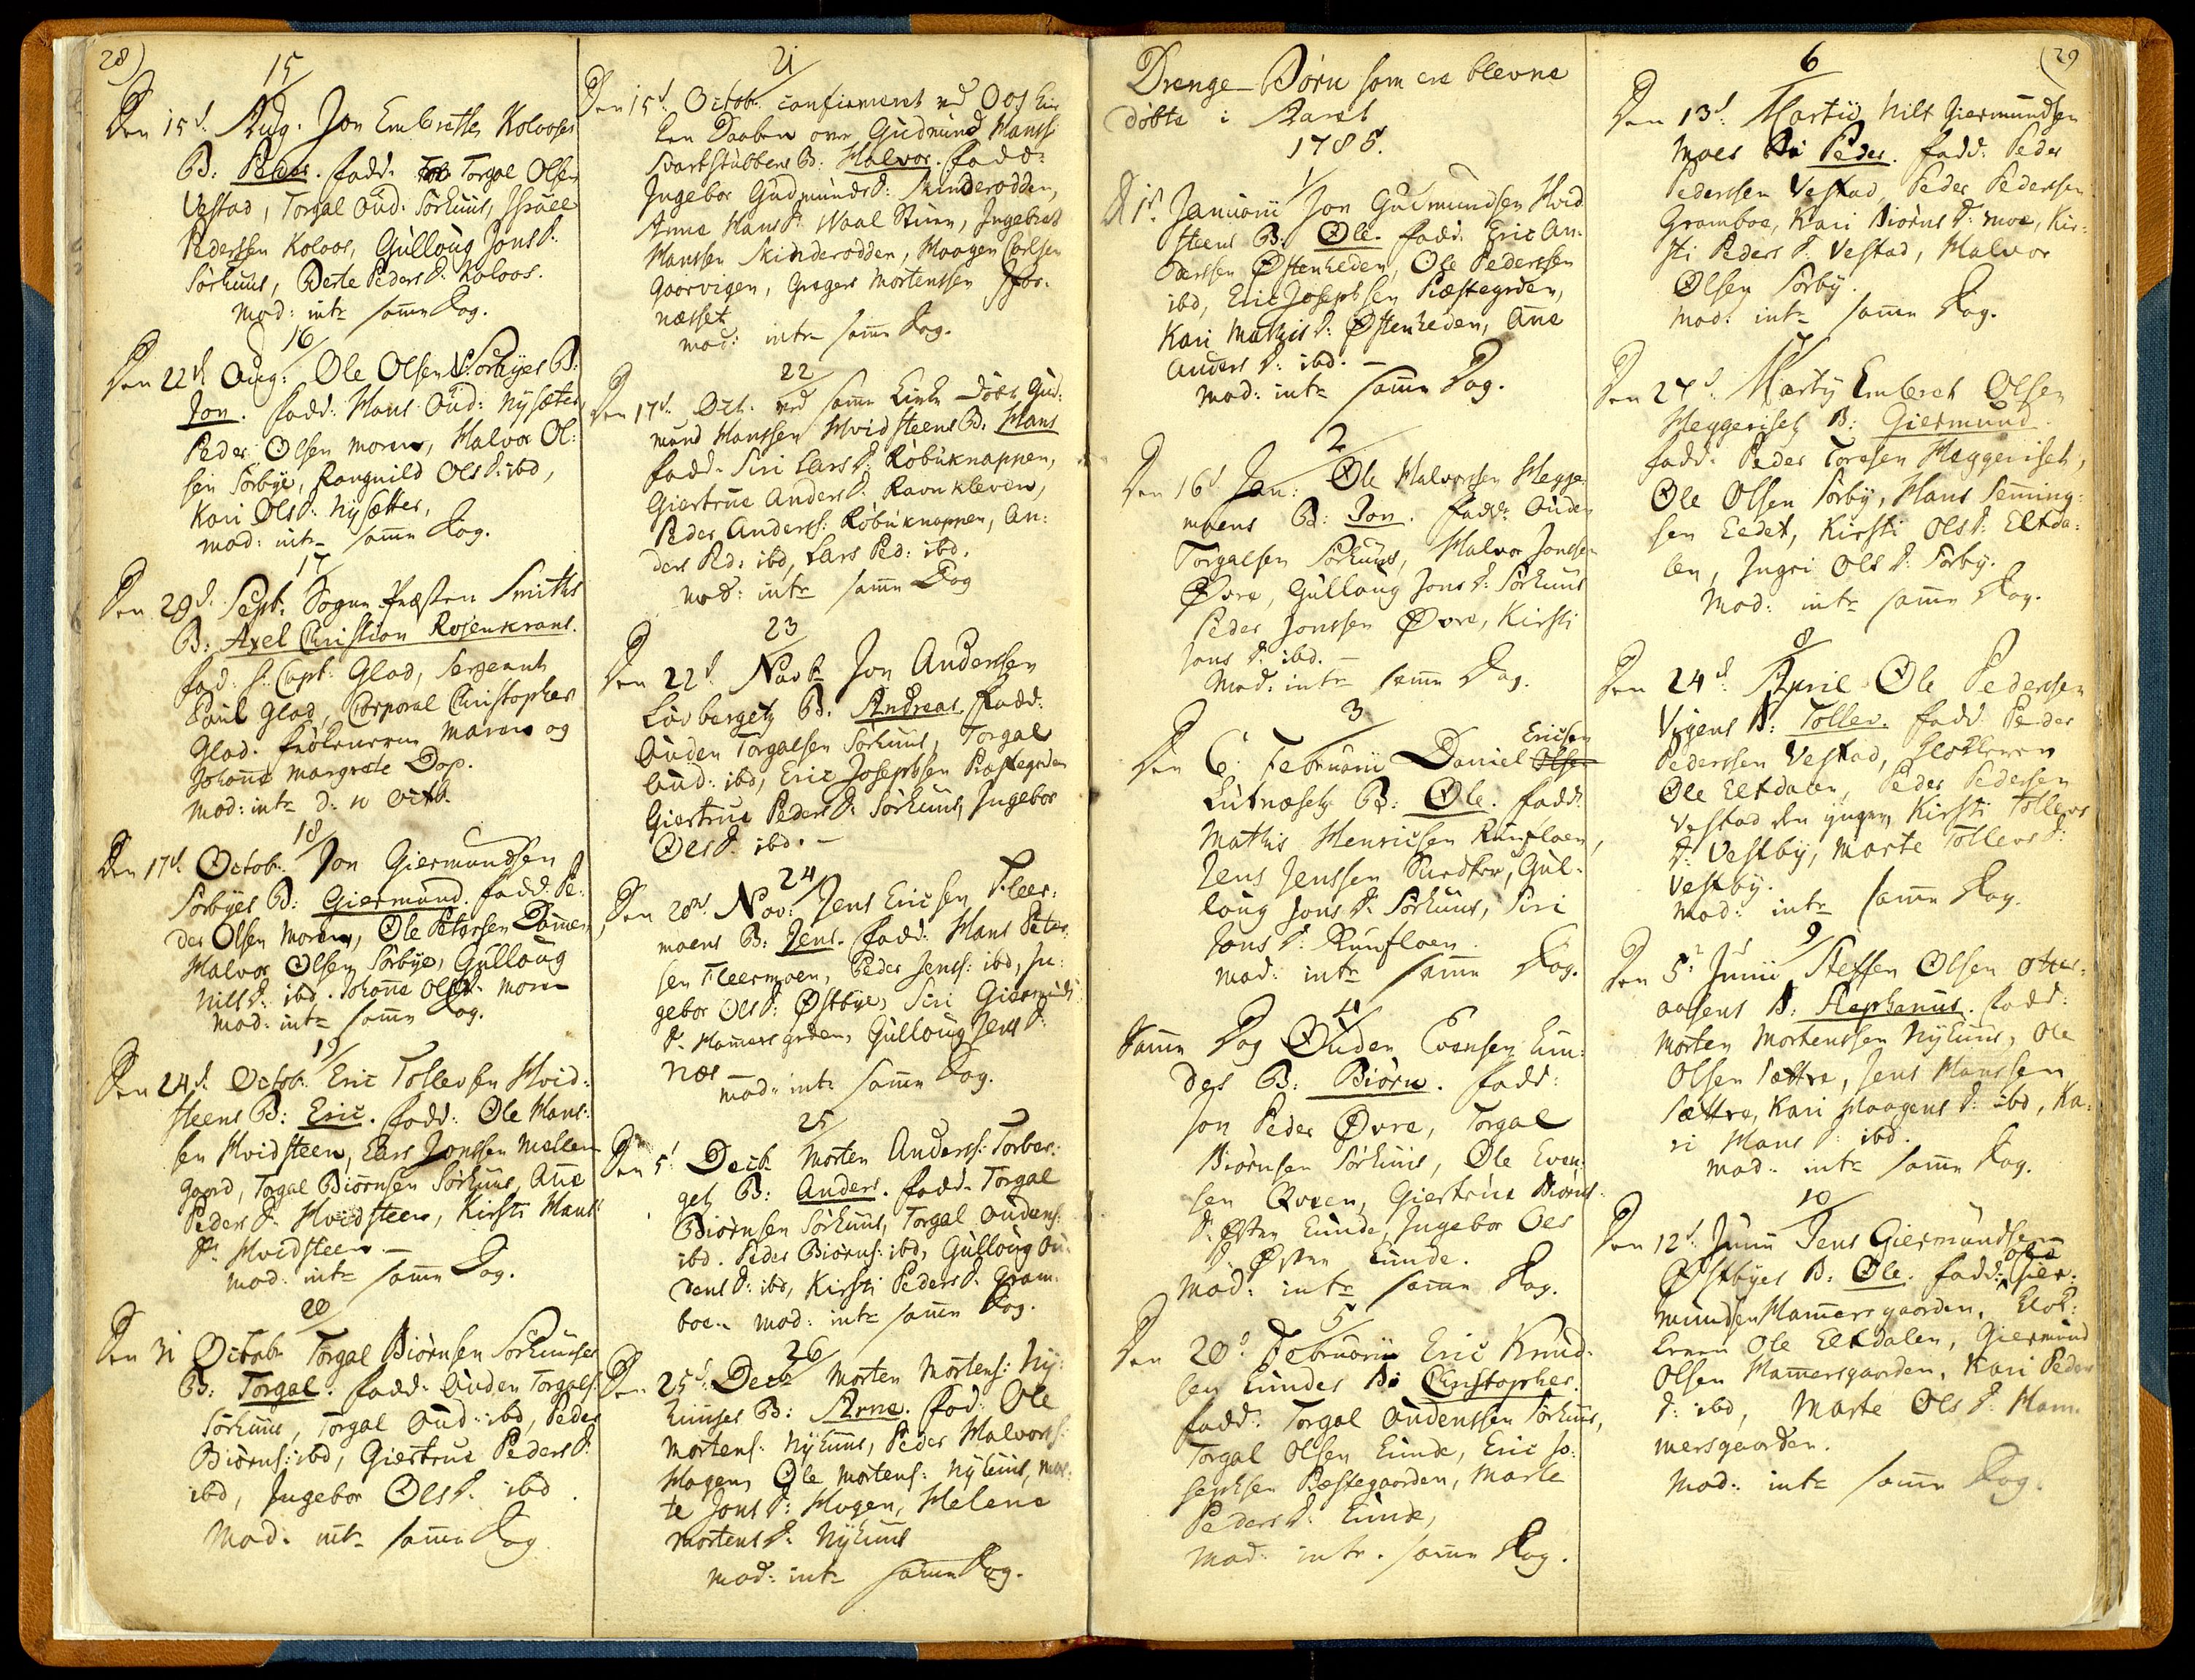 28)
15
Den 15d. Aug. Jon Embretsen Kolooses
B: Peder. fadd. Torgal Olsen
Vestad, Torgal Oud. Sørhuus, Israel
Pedersen Koloos, Gulloug Jons D.
Sørhuus, Berte Peders D. Koloos.
Mod: intr. samme Dag.
16
Den 22d. Aug: Ole Olsen Sørbyes B:
Jon. fadd: Hans Oud: Nysæter,
Peder Olsen Moren, Halvor Ol:
sen Sørbye, Rangnild Ols D. ibd,
Kari Ols D. Nysætter,
mod: intr. samme Dag.
17
Den 29d. Sept. Sogne Præsten Smiths
B: Axel Christian Rosenkrans.
fad: Hr. Capt: Glad, Sergeant
Paul Glad, Corporal Christopher
Glad. frøkenerne Maren og
Johanne Margrete Dop.
Mod: intr. d: 10 Octb.
18
Den 17d. Octob. Jon Giermundsen
Sørbyes B: Giermund. fadd: Pe:
der Olsen Moren, Ole Petersen Dammen,
Halvor Olsen Sørbye, Gulloug
Nils D. ibd. Johanne Ols D. Moren
Mod: intr. samme Dag.
19
Den 24d. Octob. Eric Tollevsen Hvid:
steens B: Eric. fadd: Ole Hans:
sen Hvidsteen, Lars Jonssen Mellem
gaard, Torgal Biørnsen Sørhuus, Anne
Peders D. Hvidsteen, Kirsti Hans
D. Hvidsteen. –
Mod: intr. samme Dag.
20
Den 31 Octobr. Torgal Biørnsen Sørhuuses
B: Torgal. fadd. Ouden Torgals:
Sørhuus, Torgal Oud: ibd, Peder
Biørns: ibd, Giertrue Peders D.
ibd, Ingebor Ols D. ibd.
Mod. intr. samme Dag
21
Den 15d. Octob. confirmeret ved Oos Kir
ken Daaben over Gudmund Hanss:
Svartstubbens B: Halvor. fadd:
Ingebor Gudmunds D: Skinderodden,
Anne Hans D. Waal Stuen, Ingebret
Hanssen Skinderodden, Haagen Carlsen
Gaarvigen, Gregers Mortenssen Hor-
næsset
mod: intr. samme Dag.
22
Den 17d. Oct. ved samme Kirke døbt Gud:
mund Hanssen Hvidsteens B. Hans
fadd. Siri Lars D: Robuknappen,
Giertrue Anders D. Ravnkleven,
Peder Anderss: Robuknappen, An:
ders Ped: ibd, Lars Ped: ibd.
Mod: intr. samme Dag
23
Den 22d. Novb. Jon Anderssen
Lövbergets B. Andreas. fadd:
Ouden Torgalsen Sørhuus, Torgal
Oud: ibd, Eric Josephsen Præstegrden
Giertrue Peders D. Sørhuus, Ingebor
Ols D. ibd. –
24
Den 28de. Nov: Jens Ericsen Fleer:
moens B: Jens. fadd: Hans Peter
sen Fleermoen, Peder Jenss: ibd, In:
gebor Ols D: Østbye, Siri Giermunds
D. Hamersgrden, Gulloug Jens D:
Næs –
mod: intr. samme Dag.
25
Den 5t. Decb. Morten Anderss: Torber:
gets B: Anders. fadd. Torgal
Biørnsen Sørhuus, Torgal Oudens:
ibd. Peder Biørns: ibd, Gulloug Ou:
dens D: ibd, Kirsti Peders D: Gram:
boe. Mod: intr. samme Dag.
26
Den 25d. Decb. Morten Mortens: Ny:
huuses B: Arne. fad: Ole
Mortens: Nyhuus, Peder Halvors:
Hagen, Ole Mortens: Nyhuus, Mar:
te Jons D: Hagen, Helene
Mortens D. Nyhuus
Mod: intr. samme Dag.
Drenge-Børn som ere blevne
døbte i Aaret
1785.
1
D 1st. Januarii Jon Gudmundsen Hvid
steens B. Ole. fadd. Eric An:
derssen Østenheden, Ole Pederssen
ibd, Eric Josephsen Præstegrden,
Kari Mathis D: Østenheden, Anne
Anders D: ibd. –
Mod: intr. samme Dag.
2
Den 16d. Jan: Ole Halvorsen Hegge
moens B: Jon. fadd. Ouden
Torgalsen Sørhuus, Halvor Jonssen
Øvre, Gulloug Jons D: Sørhuus
Peder Jonssen Øvre, Kirsti
Jons D. ibd. –
Mod: intr. samme Dag.
3
Den 6. Februarii Daniel Ericsen Olsen
Lutnæsets B: Ole. fadd.
Mathis Henricsen Runfloen,
Jens Jenssen Sundten, Gul:
loug Jons D. Sørhuus, Siri
Jons D: Runfloen.
mod: intr. samme Dag.
4
Samme Dag Ouden Evensen Lun:
des B: Biørn. fadd:
Jon Peder Øvre, Torgal
Biørnsen Sørhuus, Ole Even:
sen Qveen, Giertrue Biørns:
D. Østen Lunde, Ingebor Ols
D. Østen Lunde.
Mod: intr. samme Dag.
5
Den 20d. Februarii Eric Knud:
sen Lundes B: Christopher.
fadd: Torgal Oudenssen Sørhuus,
Torgal Olsen Lunde, Eric Jo:
sephsen Præstegaarden, Marte
Peders D. Lunde,
Mod: intr. samme Dag.
(29
6
Den 13d. Martii Nils Giermundsen
Moes B: Peder. fadd: Peder
Pederssen Vestad, Peder Pederssen
Gramboe, Kari Biørns D: Moe, Kir:
sti Peders D: Vestad, Halvor
Olsen Sörby.
Mod: intr. samme Dag.
7
Den 27d. Marty Embret Olsen
Heggerisets B: Giermund.
fadd. Peder Toresen Heggeriset,
Ole Olsen Sörby, Hans Semming:
sen Eedet, Kirsti Ols D: Eltda:
len, Ingri Ols D. Sörby.
Mod: intr. samme Dag.
8
Den 24d. April Ole Pedersen
Vigens B: Tollev. fadd: Peder
Pederssen Vestad, Klokkeren
Ole Eltdalen, Peder Pederssen
Vestad den yngre, Kirsti Tollevs
D: Vestby, Marte Tollevs D:
Vestby.
mod: intr. samme Dag.
9
Den 5t. Junii Steffen Olsen Otter:
aasens B: Stephanus. fadd:
Morten Mortenssen Nyhuus, Ole
Olsen Sættre, Jens Hanssen
Sættre, Kari Haagens D. ibd, Ka:
ri Hans D: ibd.
Mod: intr. samme Dag.
10
Den 12d. Junii Jens Giermundsen
Østbyes B: Ole. fadd: Ole Gier:
mundsen Hamersgaarden, Klok:
keren Ole Eltdalen, Giermund
Olsen Hamersgaarden, Kari Peders
D: ibd, Marte Ols D. Ham:
mersgaarden.
Mod: intr. samme Dag.